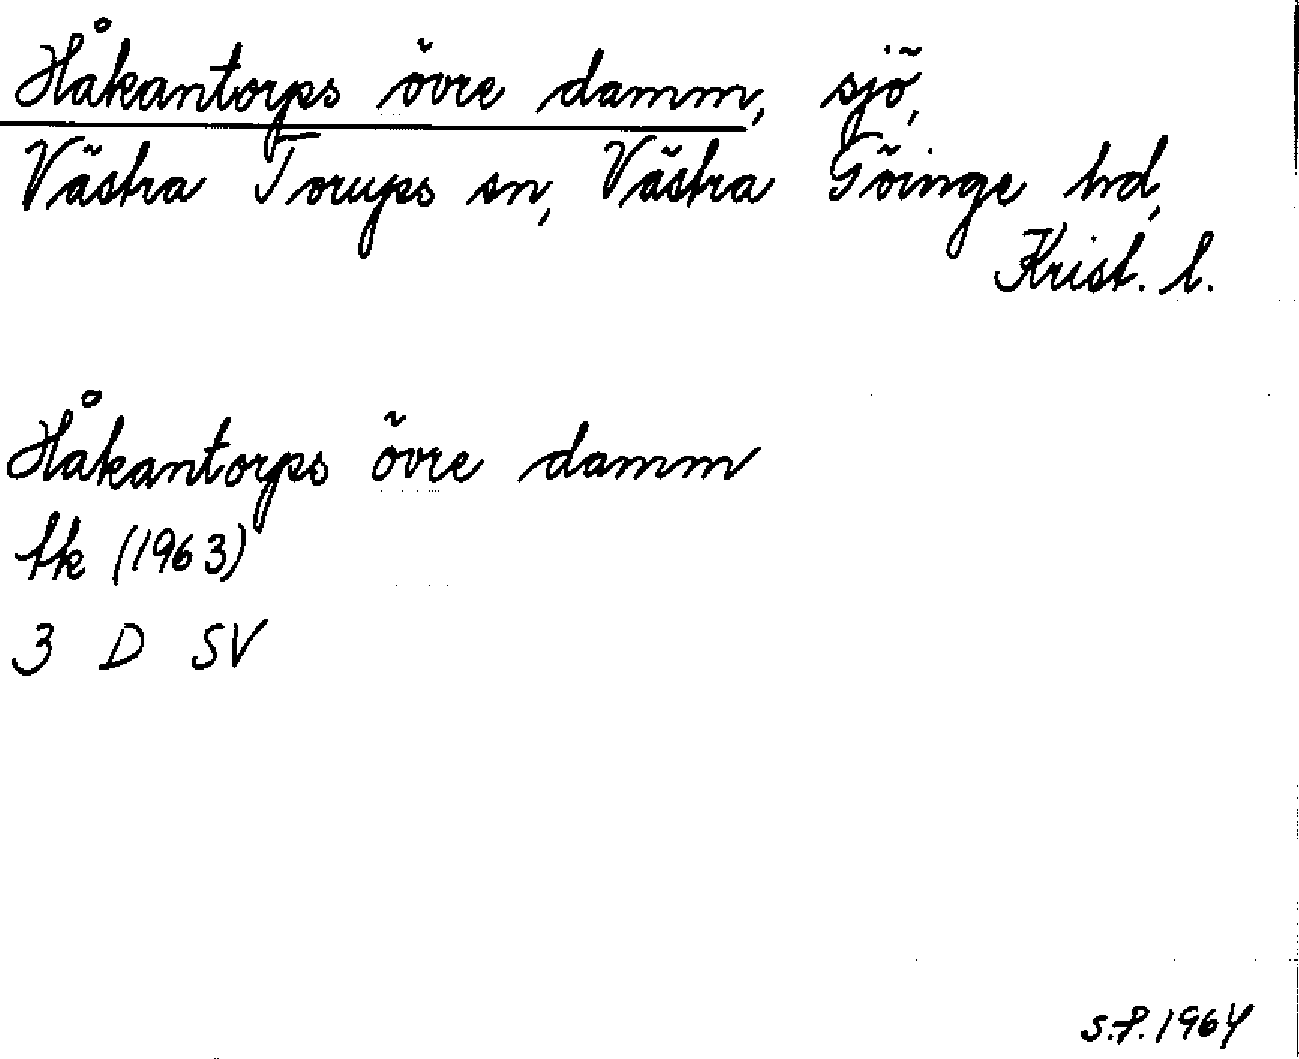 Håkantorps övre damm, sjö,
Västra Torups sn, Västra Göinge hd,
Krist. l.
Håkantorps övre damm
tk (1963)
3 D SV
S.P. 1964